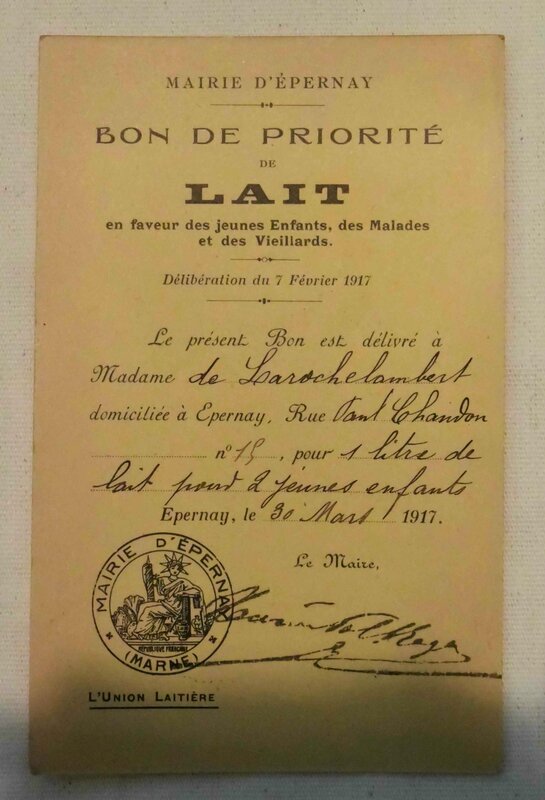 MAIRIE D'ÉPERNAY
BON DE PRIORITÉ
DE
LAIT
en faveur des jeunes Enfants, des Malades
et des Vieillards.
Délibération du 7 Février 1917
Le présent Bon est délivré à
Madame de Larochelambert
domiciliée à Epernay, Rue Paul Chandon
n° 15, pour 1 litre de
lait pour 2 jeunes enfants
Epernay, le 30 Mars 1917.
Le Maire,
MAIRIE D'ÉPERNAY
RÉPUBLIQUE FRANÇAISE
(MARNE)
L'UNION LAITIÈRE